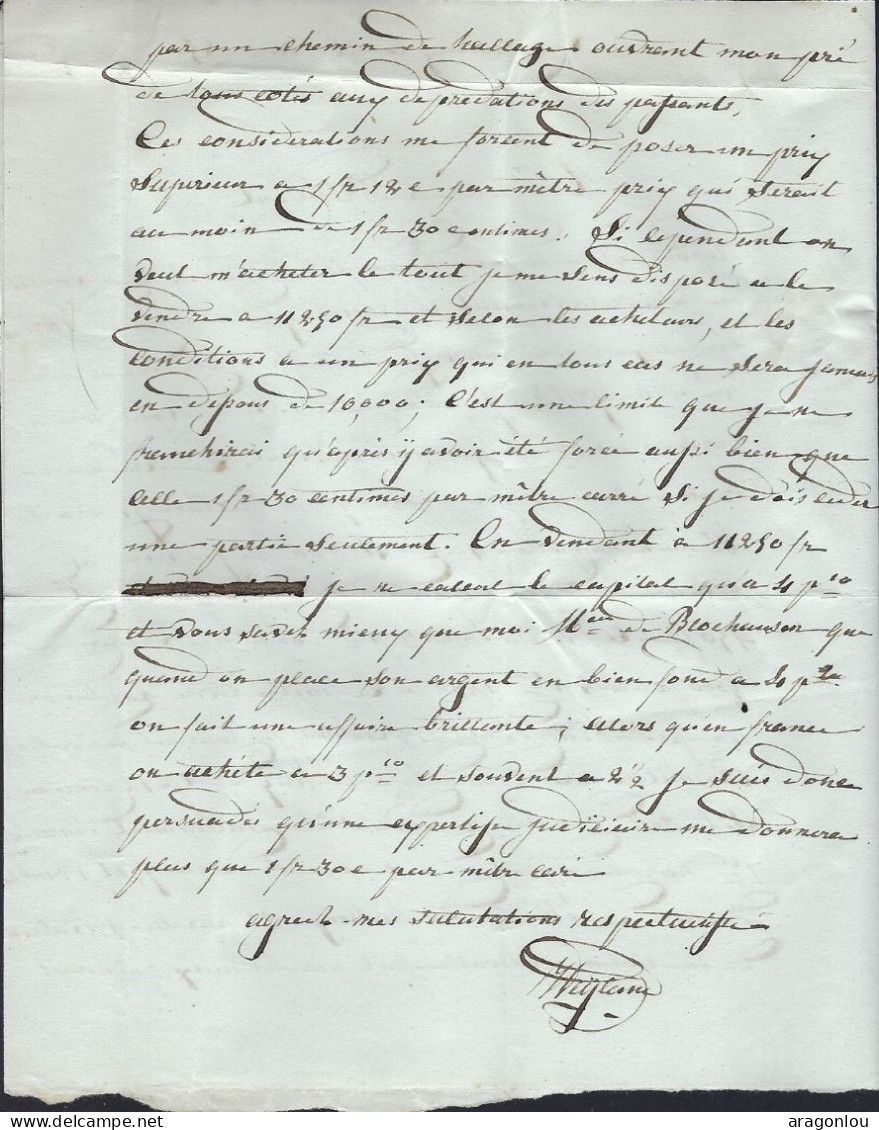 par un chemin de hallage ouvrant mon pré
de tous cotés aux depredations des passants,
Ces considerations me forcent de poser un prix
superieur a 1 fr 12 c par mêtre prix qui serait
au moin de 1 fr 30 centimes. Si cependant on
veut m'acheter le tout je me sens disposé a le
vendre a 11250 fr et selon les acheteurs, et les
conditions a un prix qui en tous cas ne sera jamais
en depous de 10,000; c'est une limite que je ne
franchirai qu'après y avoir été forcé aussi bien que
celle 1 fr 30 centimes par mêtre carré si je dois ceder
une partie seulement. En vendant à 11250 fr
je ne calcul le capital qu'a 4 p%
et vous savez mieux que moi de Blochausen que
quand on place son argent en bien fond a 4 p%
on fait une affaire brillante; alors qu'en france
on achète a 3 p% et souvent a 2½ je suis donc
persuadés qu'une expertise judiciaire me donnera
plus que 1 fr 30 c par mêtre caré
agreez mes salutations respectueuse